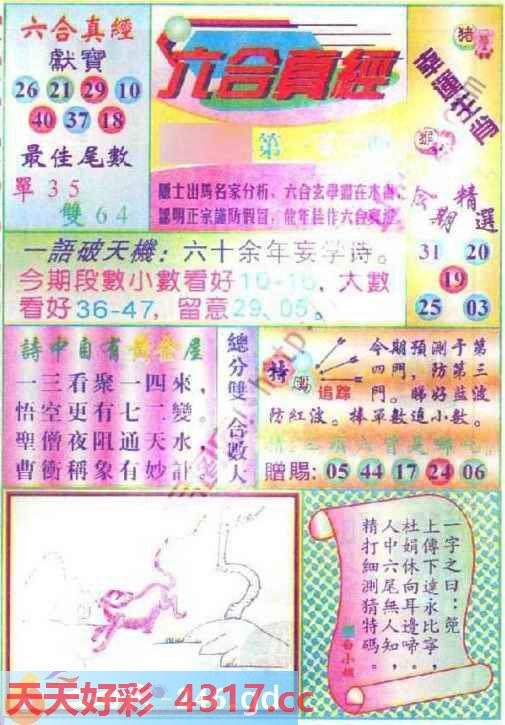 六合真經
獻寶
26 21 29 10
40 37 18
最佳尾數
單 35
雙 64
六合真經
第
猪
幸運生肖
今期精選
31 20
19
25 03
隱士出馬名家分析、六合玄學盡在本
一語破天機：六十余年妄学诗。
今期段數小數看好10-15，大數
看好36-47，留意29、05。
詩中自有黃金屋
一三看聚一四來，
悟空更有七二變。
聖僧夜阻通天水，
曹衝稱象有妙計。
總分雙 合數大
特
追踪
今期預測于第
四門，防第三
門。睇好蓝波
防紅波。捧單數追小數。
贈賜：05 44 17 24 06
一字之曰：蒬
上傳下達永比寧，
杜娟休向耳邊啼。
人中六尾無人知，
精打細測猜特碼。
白小姐
天天好彩 4317.cc